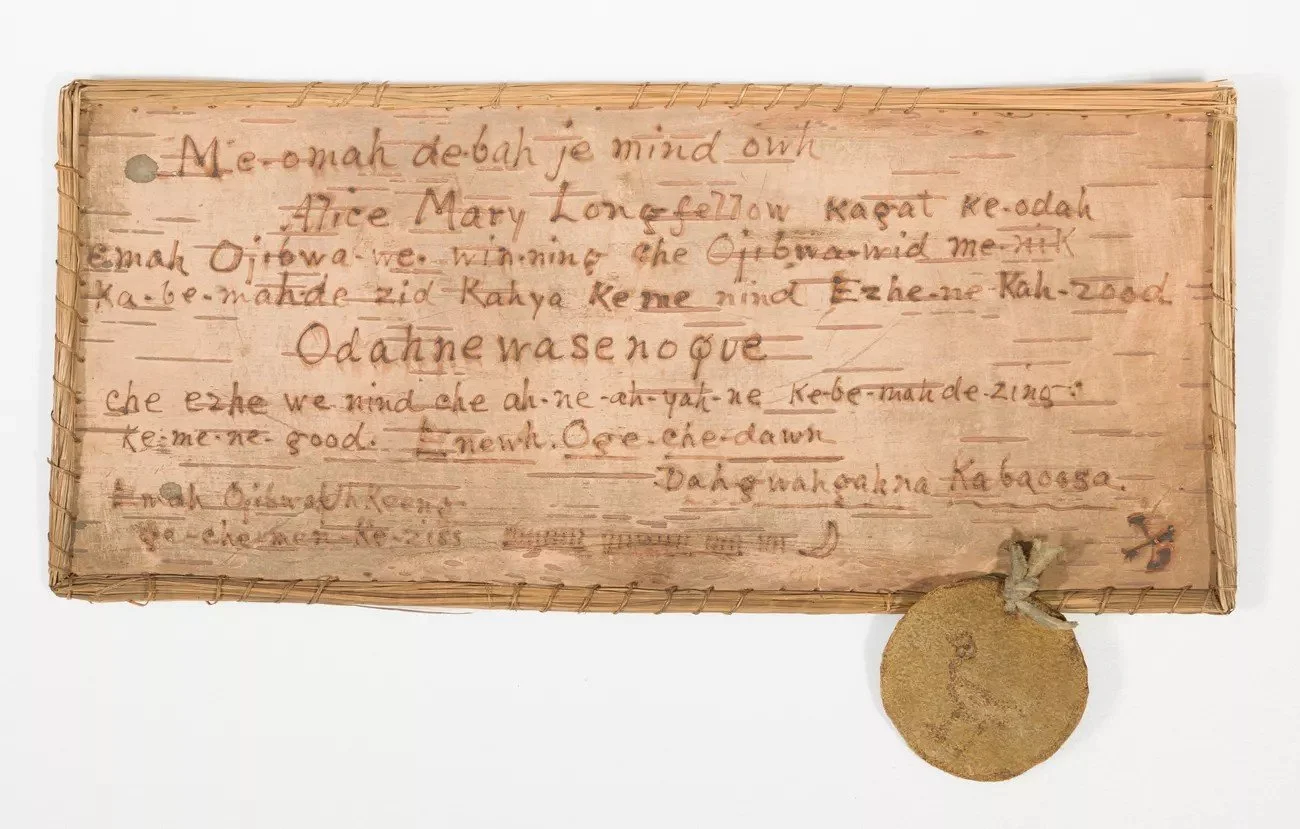 Me-omah de-bah je mind owh
Alice Mary Longfellow kagat ke-odah
emah Ojibwa-we-win-ning che Ojibwa-wid me-nik
ka-be-mahde zid kahya keme nind Ezhe-ne-kah-zood
Odahnewasenoque
che ezhe we nind che ah-ne-ah-yah-ne ke-be-mah de-zing:
ke-me-ne-good. Enewh. Oge-che-dawn
Dahgwahgahna Kabaossa.
Emah Ojibwa Uhkeeng
ge-che-men-ke-ziss